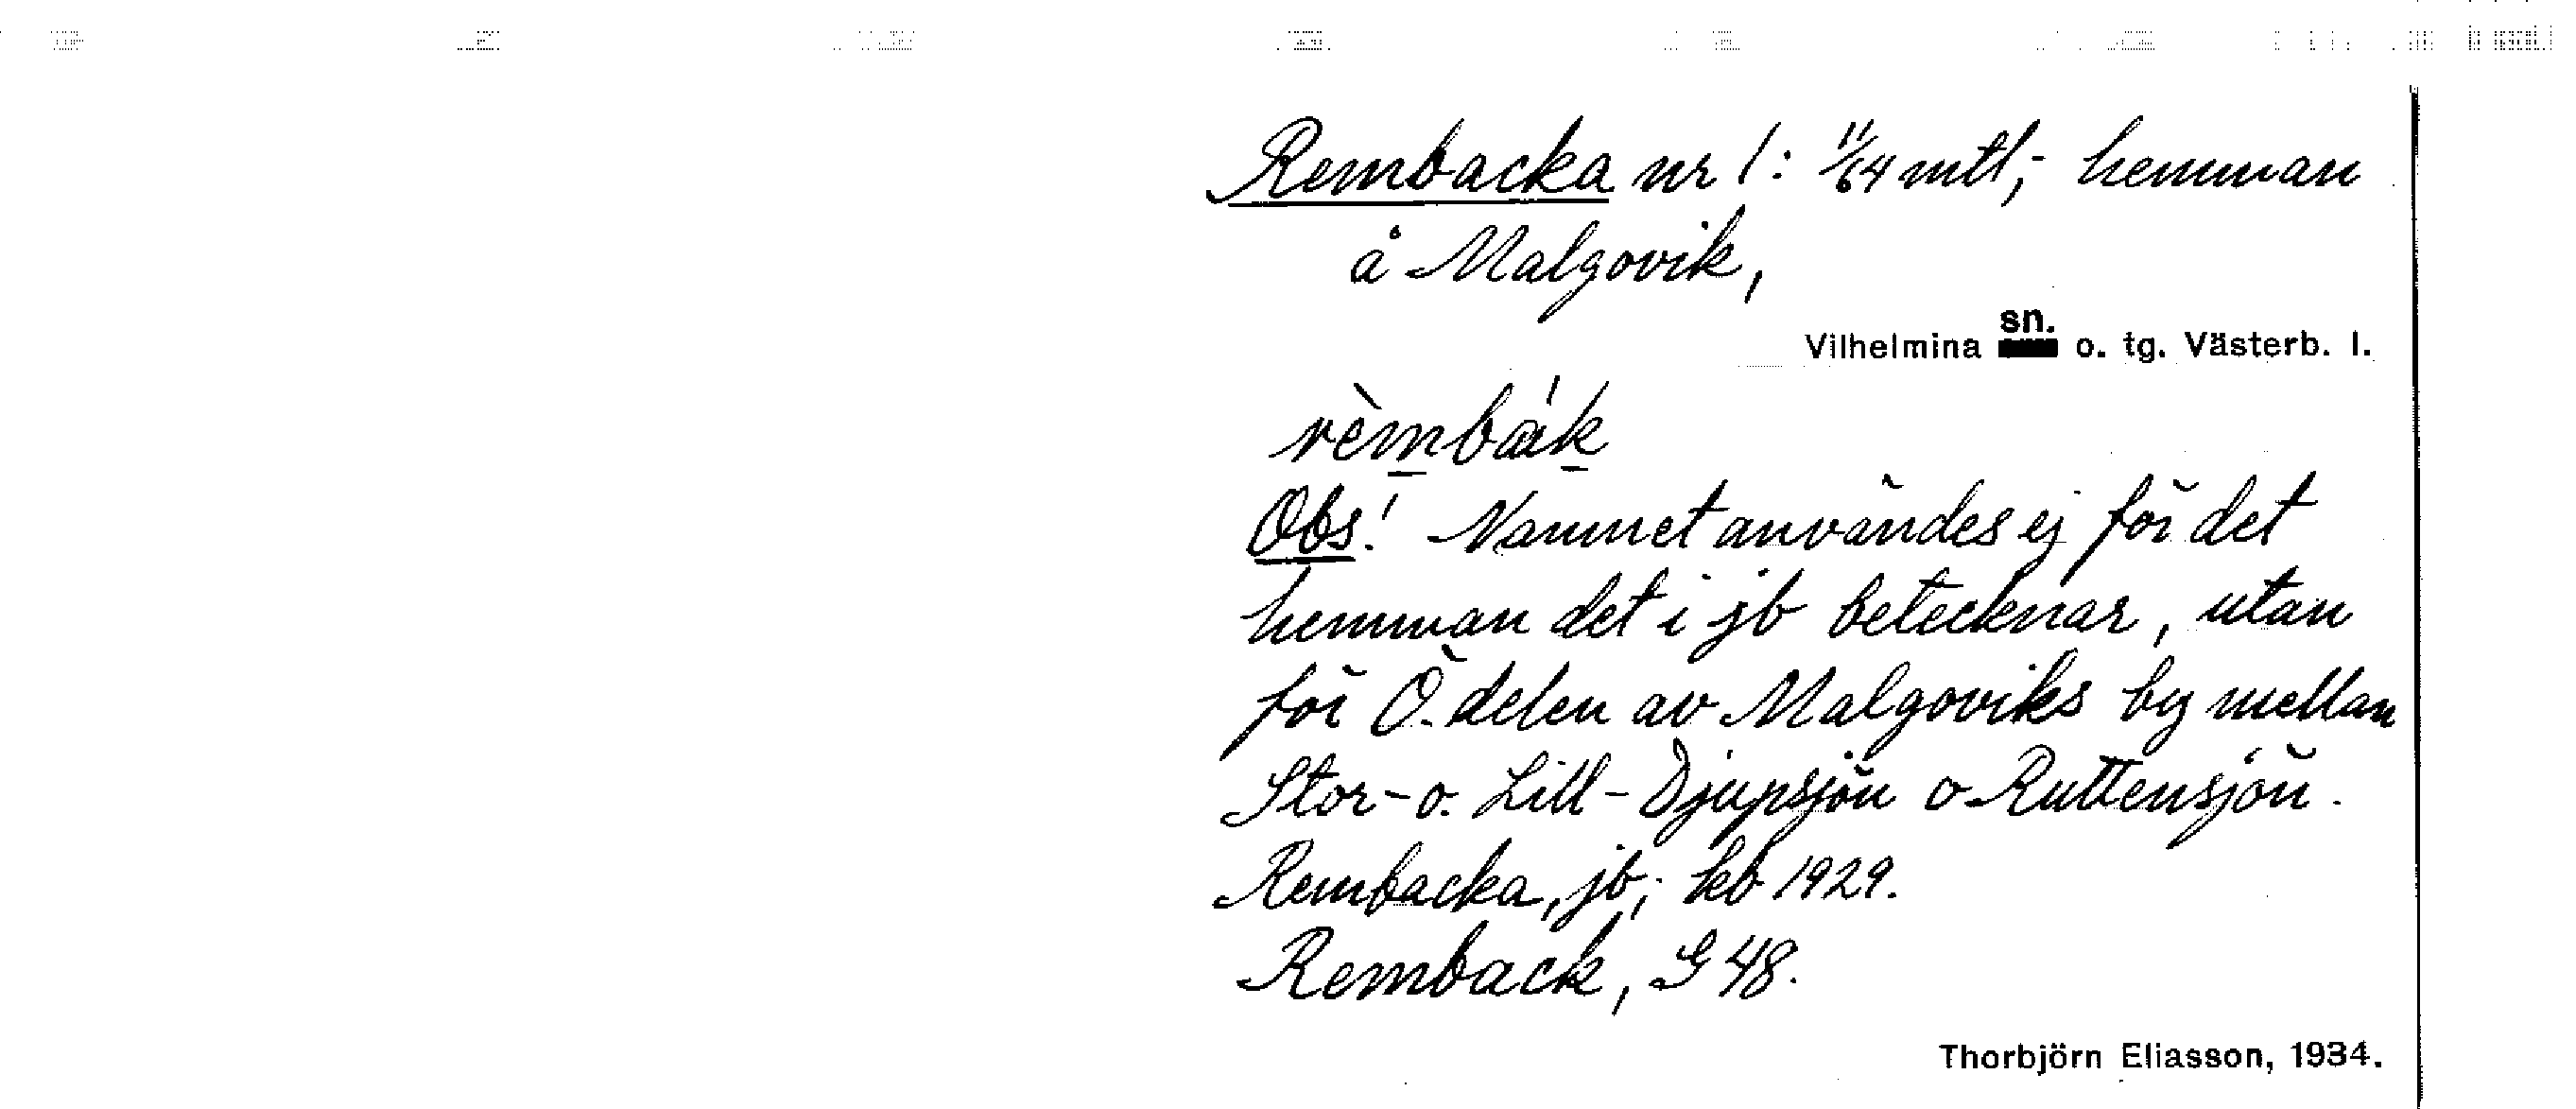 Rembacka nr 1: 11/64 mtl; hemman
å Malgovik,
sn.
Vilhelmina o. tg. Västerb. l.
rèmbák
Obs! Namnet användes ej för det
hemman det i jb betecknar, utan
för Ö. delen av Malgoviks by mellan
Stor- o. Lill-Djupsjön o Ruttensjön.
Rembacka, jb; kb 1929.
Remback, G 48.
Thorbjörn Eliasson, 1934.